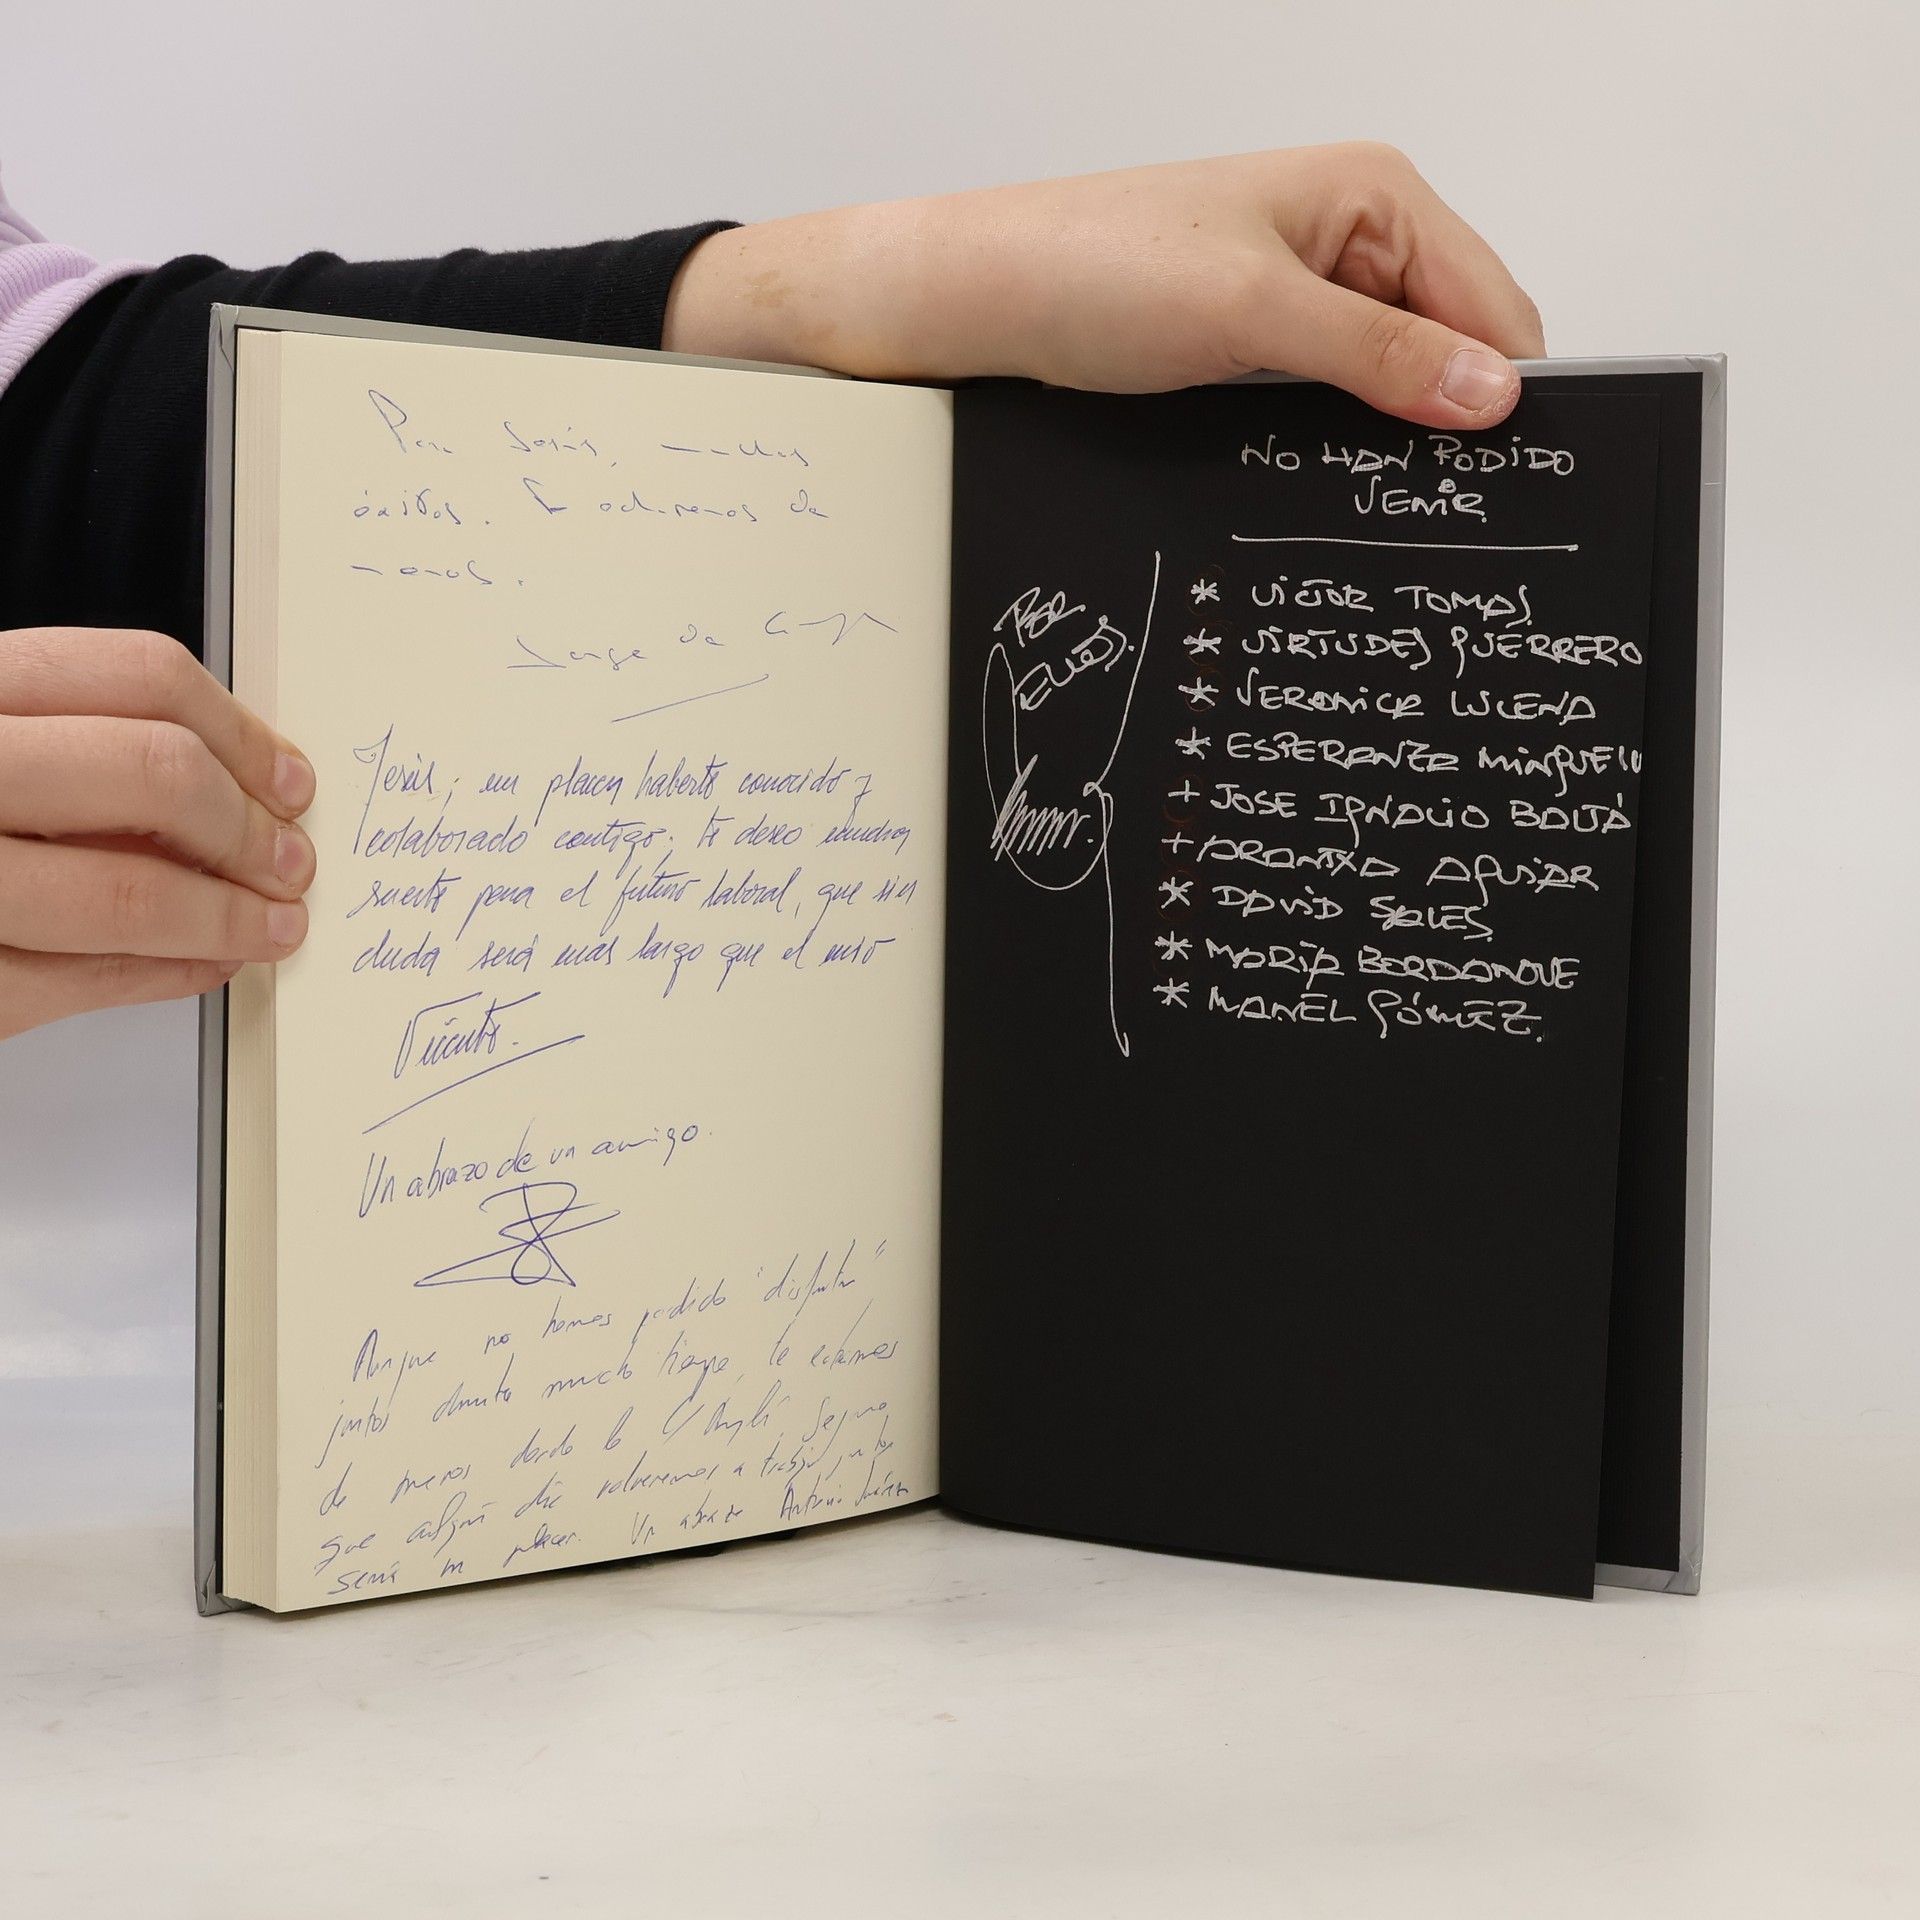 Para Jesús, muchos
éxitos. Te echaremos de
menos.
Jorge de
Jesús; un placer haberte conocido y
colaborado contigo. Te deseo mucha
suerte para el futuro laboral, que sin
duda será más largo que el mío
Vicente.
Un abrazo de un amigo.
Aunque no hemos podido "disfrutar"
juntos durante mucho tiempo, te echamos
de menos desde la C/ Anglí. Seguro
que algún día volveremos a trabajar juntos
Será un placer. Un abrazo Antonio Juárez
NO HAN PODIDO
VENIR
POR
ELLOS.
* VICTOR TOMAS.
* VIRTUDES GUERRERO
* VERONICA LUCENA
* ESPERANZA
+ JOSE IGNACIO
+ ARANTXA AGUIAR
* DAVID SALES.
* MARIA BORDANOVE
* MANEL GÓMEZ.